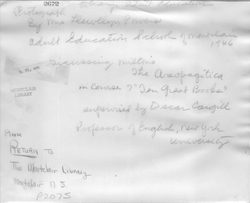 2672
Photograph
By Mrs
Adult Education School of Montclair
1946
Discussing Milton's
The Areopagitica
in course of "Ten Great Books"
conducted by Oscar Cargill
Professor of English, New York
University
From
RETURN TO
The Montclair Library
Montclair N.J.
P2073